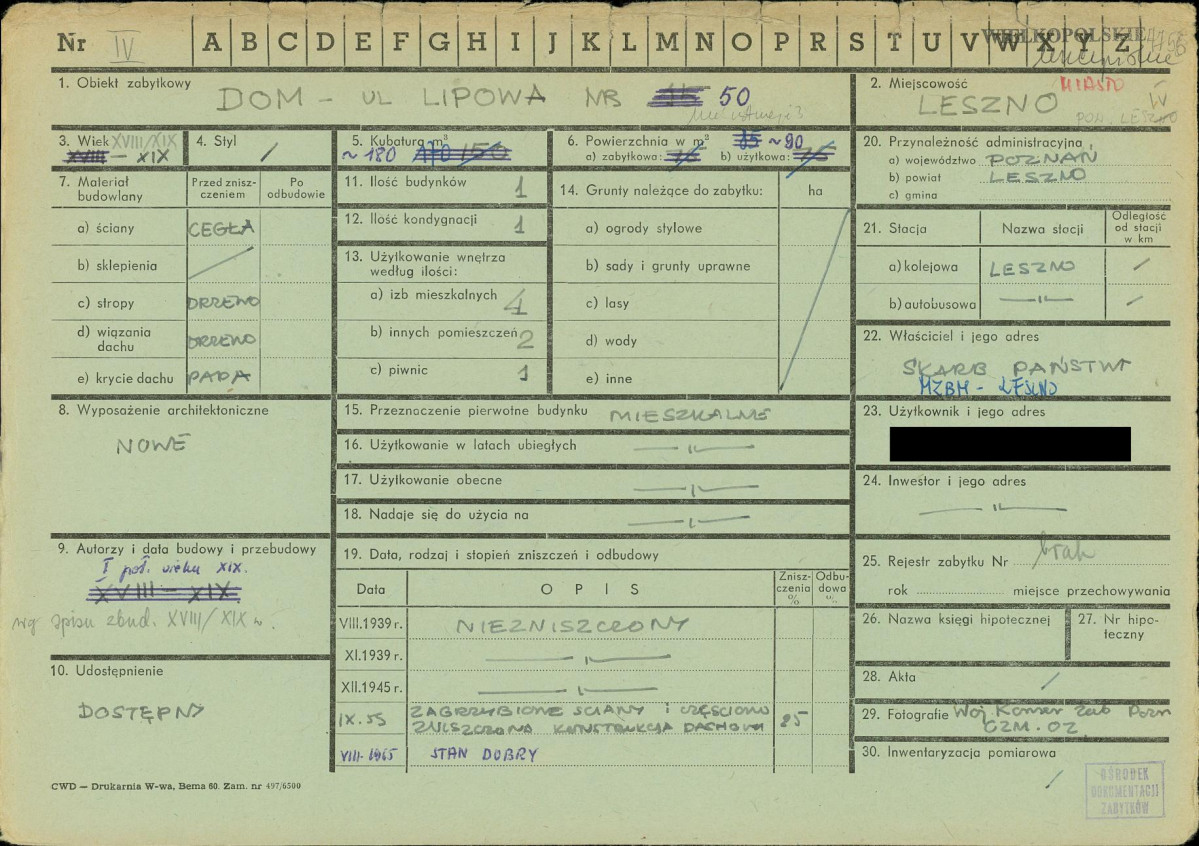 Nr IV A B C D E F G H I J K L M N O P R S T U V W X Y Z
WIELKOPOLSKIE
1. Obiekt zabytkowy
DOM - UL LIPOWA NR 50
2. Miejscowość MIASTO
LESZNO IV
POW. LESZNO
3. Wiek XVIII/XIX
XVIII - XIX
4. Styl /
5. Kubatura m³
~ 180 150
6. Powierzchnia w m² 85 ~ 90
a) zabytkowa: 75 b) użytkowa: 75
20. Przynależność administracyjna
a) województwo POZNAŃ
b) powiat LESZNO
c) gmina
7. Materiał budowlany
Przed zniszczeniem
Po odbudowie
a) ściany CEGŁA
b) sklepienia
c) stropy DRZEWO
d) wiązania dachu DRZEWO
e) krycie dachu PAPA
11. Ilość budynków 1
12. Ilość kondygnacji 1
13. Użytkowanie wnętrza
według ilości:
a) izb mieszkalnych 4
b) innych pomieszczeń 2
c) piwnic 1
14. Grunty należące do zabytku: ha
a) ogrody stylowe
b) sady i grunty uprawne
c) lasy
d) wody
e) inne
21. Stacja Nazwa stacji Odległość od stacji w km
a) kolejowa LESZNO /
b) autobusowa —"— /
22. Właściciel i jego adres
SKARB PAŃSTWA
MZBM - LESZNO
8. Wyposażenie architektoniczne
NOWE
15. Przeznaczenie pierwotne budynku MIESZKALNE
16. Użytkowanie w latach ubiegłych —"—
17. Użytkowanie obecne —"—
18. Nadaje się do użycia na —"—
23. Użytkownik i jego adres
24. Inwestor i jego adres
—"—
9. Autorzy i data budowy i przebudowy
I poł. wieku XIX.
XVIII - XIX
wg spisu zbud. XVIII/XIX w.
10. Udostępnienie
DOSTĘPNY
19. Data, rodzaj i stopień zniszczeń i odbudowy
Data OPIS Zniszczenia % Odbudowa %
VIII.1939 r. NIEZNISZCZONY
XI.1939 r. —"—
XII.1945 r. —"—
IX.55 ZAGRZYBIONE ŚCIANY i CZĘŚCIOWO
ZNISZCZONA KONSTRUKCJA DACHOWA 25
VIII-1965 STAN DOBRY
25. Rejestr zabytku Nr brak
rok miejsce przechowywania
26. Nazwa księgi hipotecznej
27. Nr hipoteczny
28. Akta /
29. Fotografie Woj Konser Zab Pozn
CZM. OZ
30. Inwentaryzacja pomiarowa
/
OŚRODEK
DOKUMENTACJI
ZABYTKÓW
CWD — Drukarnia W-wa, Bema 60. Zam. nr 497/6500